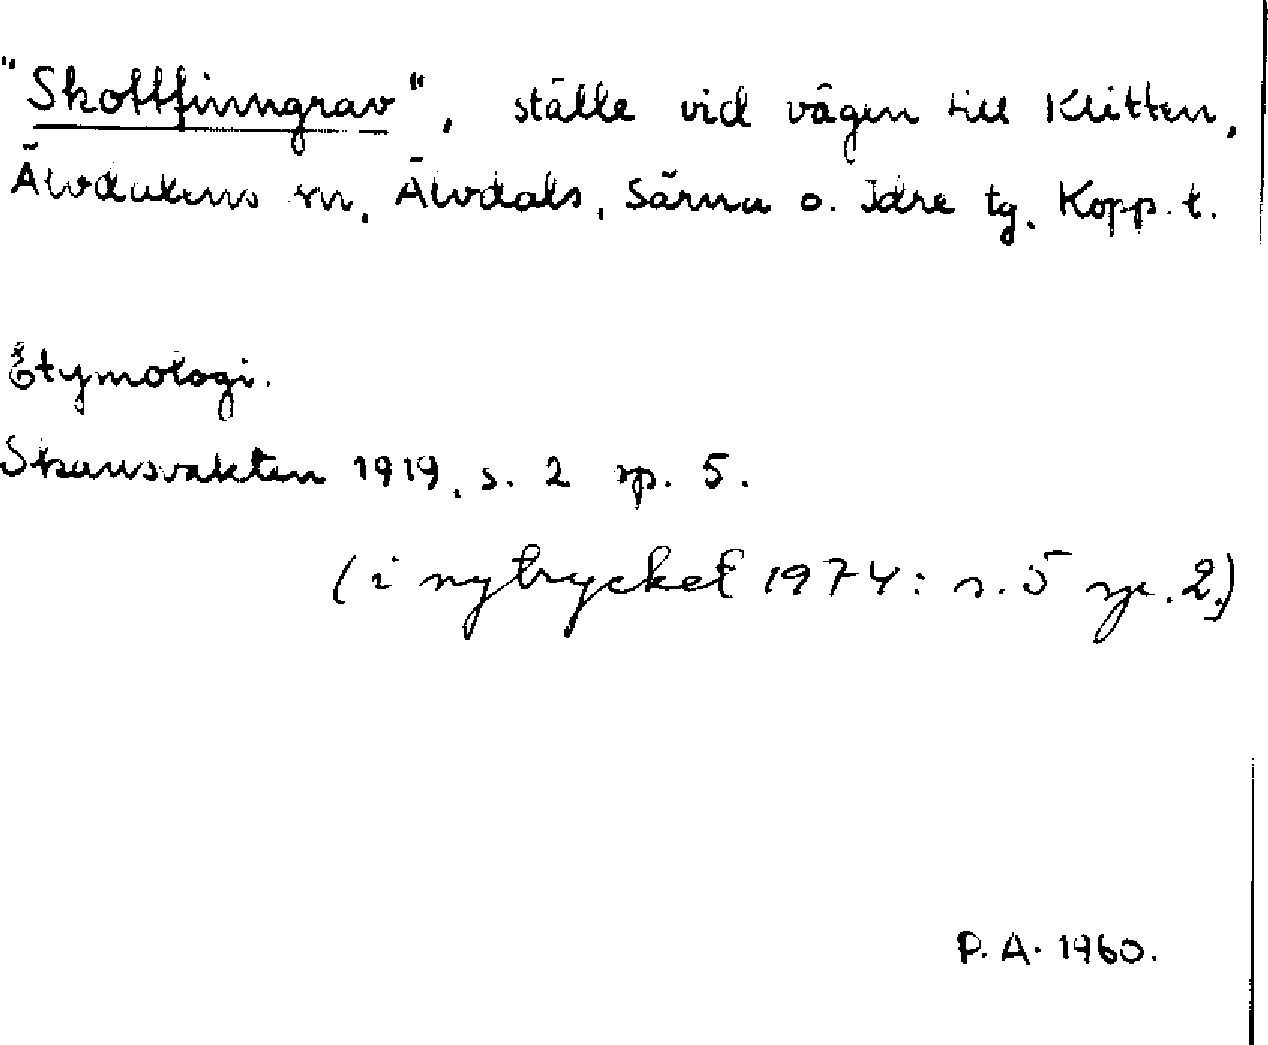 "Skottfinngrav", ställe vid vägen till Klitten,
Älvdalens sn, Älvdals, Särna o. Idre tg. Kopp. l.
Etymologi.
Skansvakten 1919, s. 2 sp. 5.
(i nytrycket 1974: s. 5 sp. 2.)
P. A. 1960.